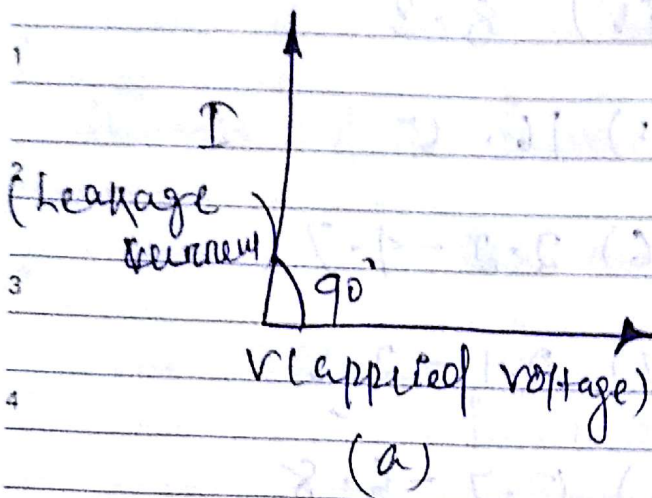 1
I
2
(Leakage
current
3
90°
V(applied voltage)
4
(a)